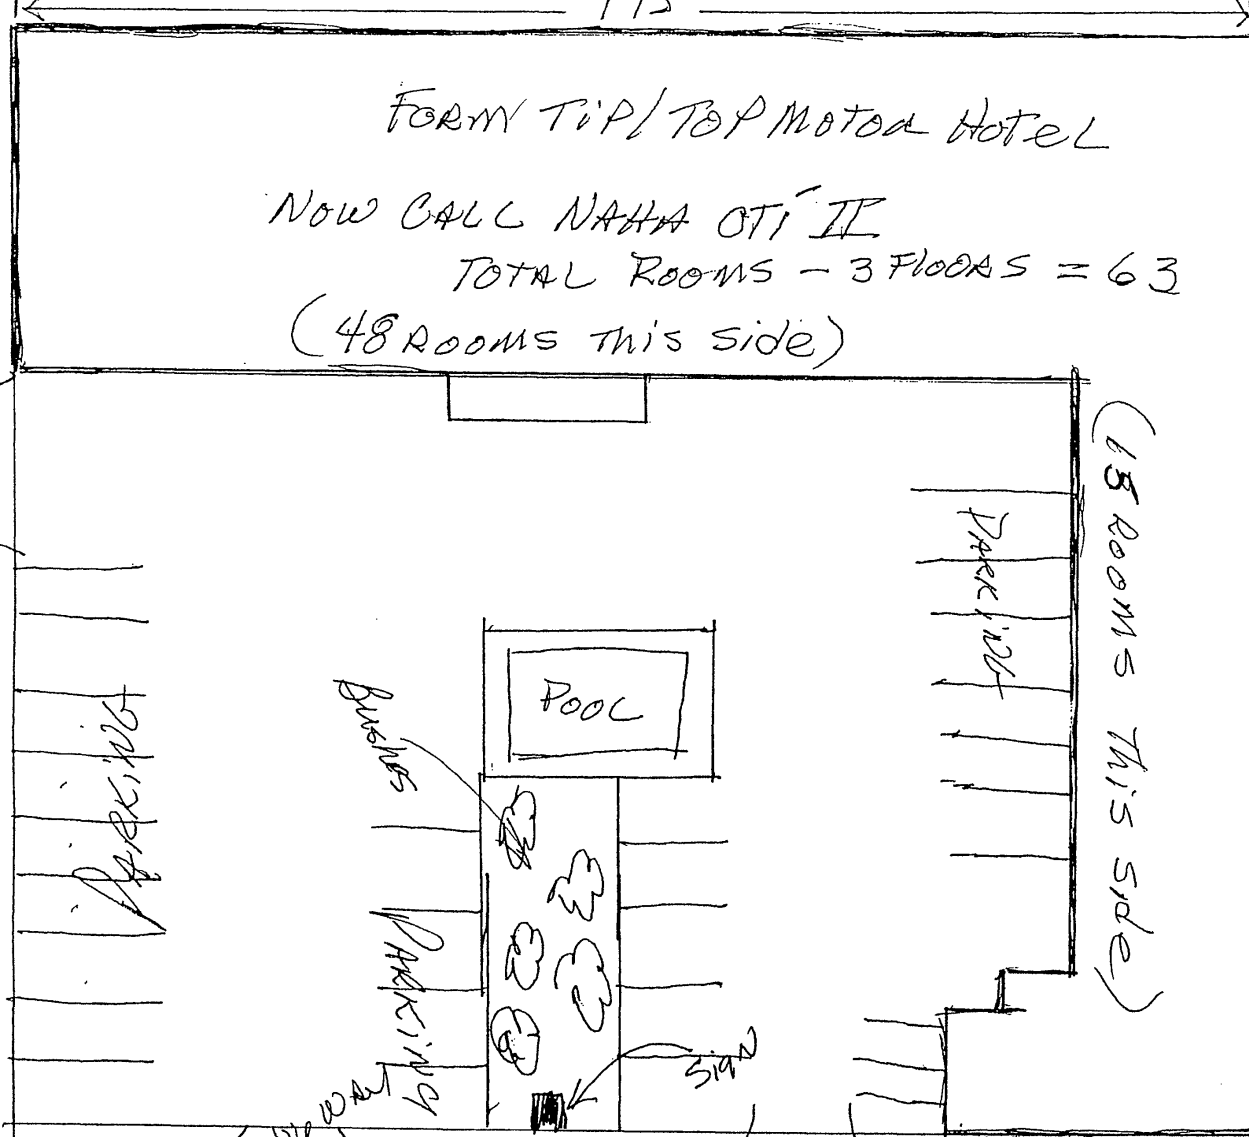 FORM TIP/TOP MOTOR HOTEL
NOW CALL NAHA OTI II
TOTAL ROOMS - 3 FLOORS = 63
(48 ROOMS THIS SIDE)
(15 ROOMS THIS SIDE)
PARKING
POOL
Bushes
PARKING
PARKING
SIGN